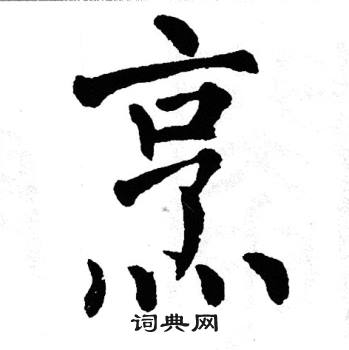 烹
词典网